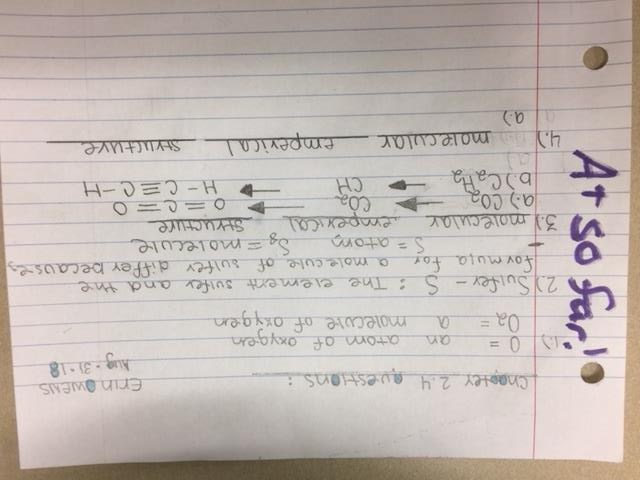 Erin Owens
Aug. 31. 18
Chapter 2.4 questions :
1.) O = an atom of oxygen
O₂ = a molecule of oxygen
2) Sulfer - S : The element sulfer and the
formula for a molecule of sulfer differ because,
S = atom, S₈ = molecule
3.) molecular emperical structure
a.) CO₂ → CO₂ → O = C = O
b.) C₂H₂ → CH → H - C ≡ C - H
4.) molecular emperical structure
a.)
A+ so far!